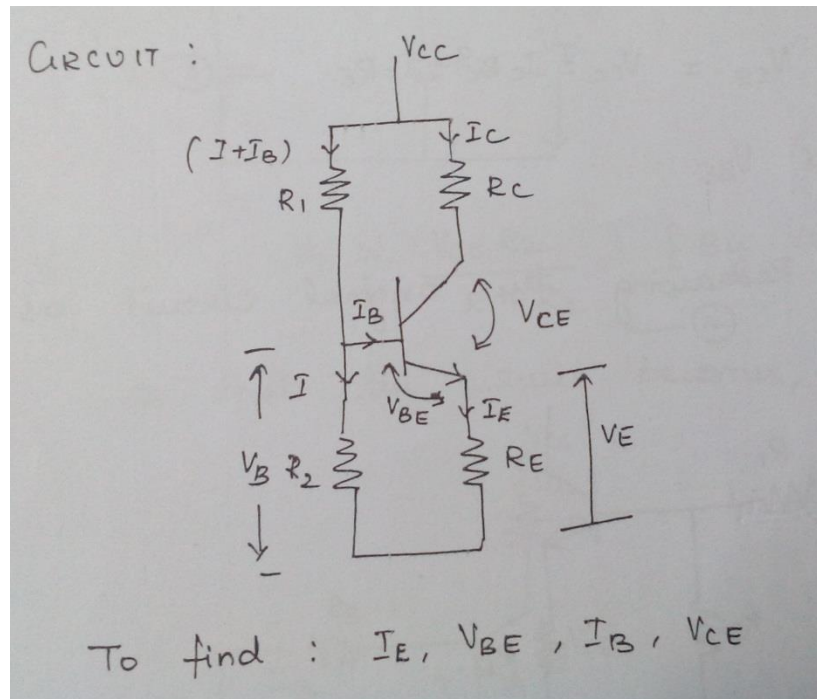 CIRCUIT :
VCC
(I+IB)
IC
R1
RC
IB
VCE
I
VBE
IE
VE
VB
R2
RE
To find : IE, VBE, IB, VCE